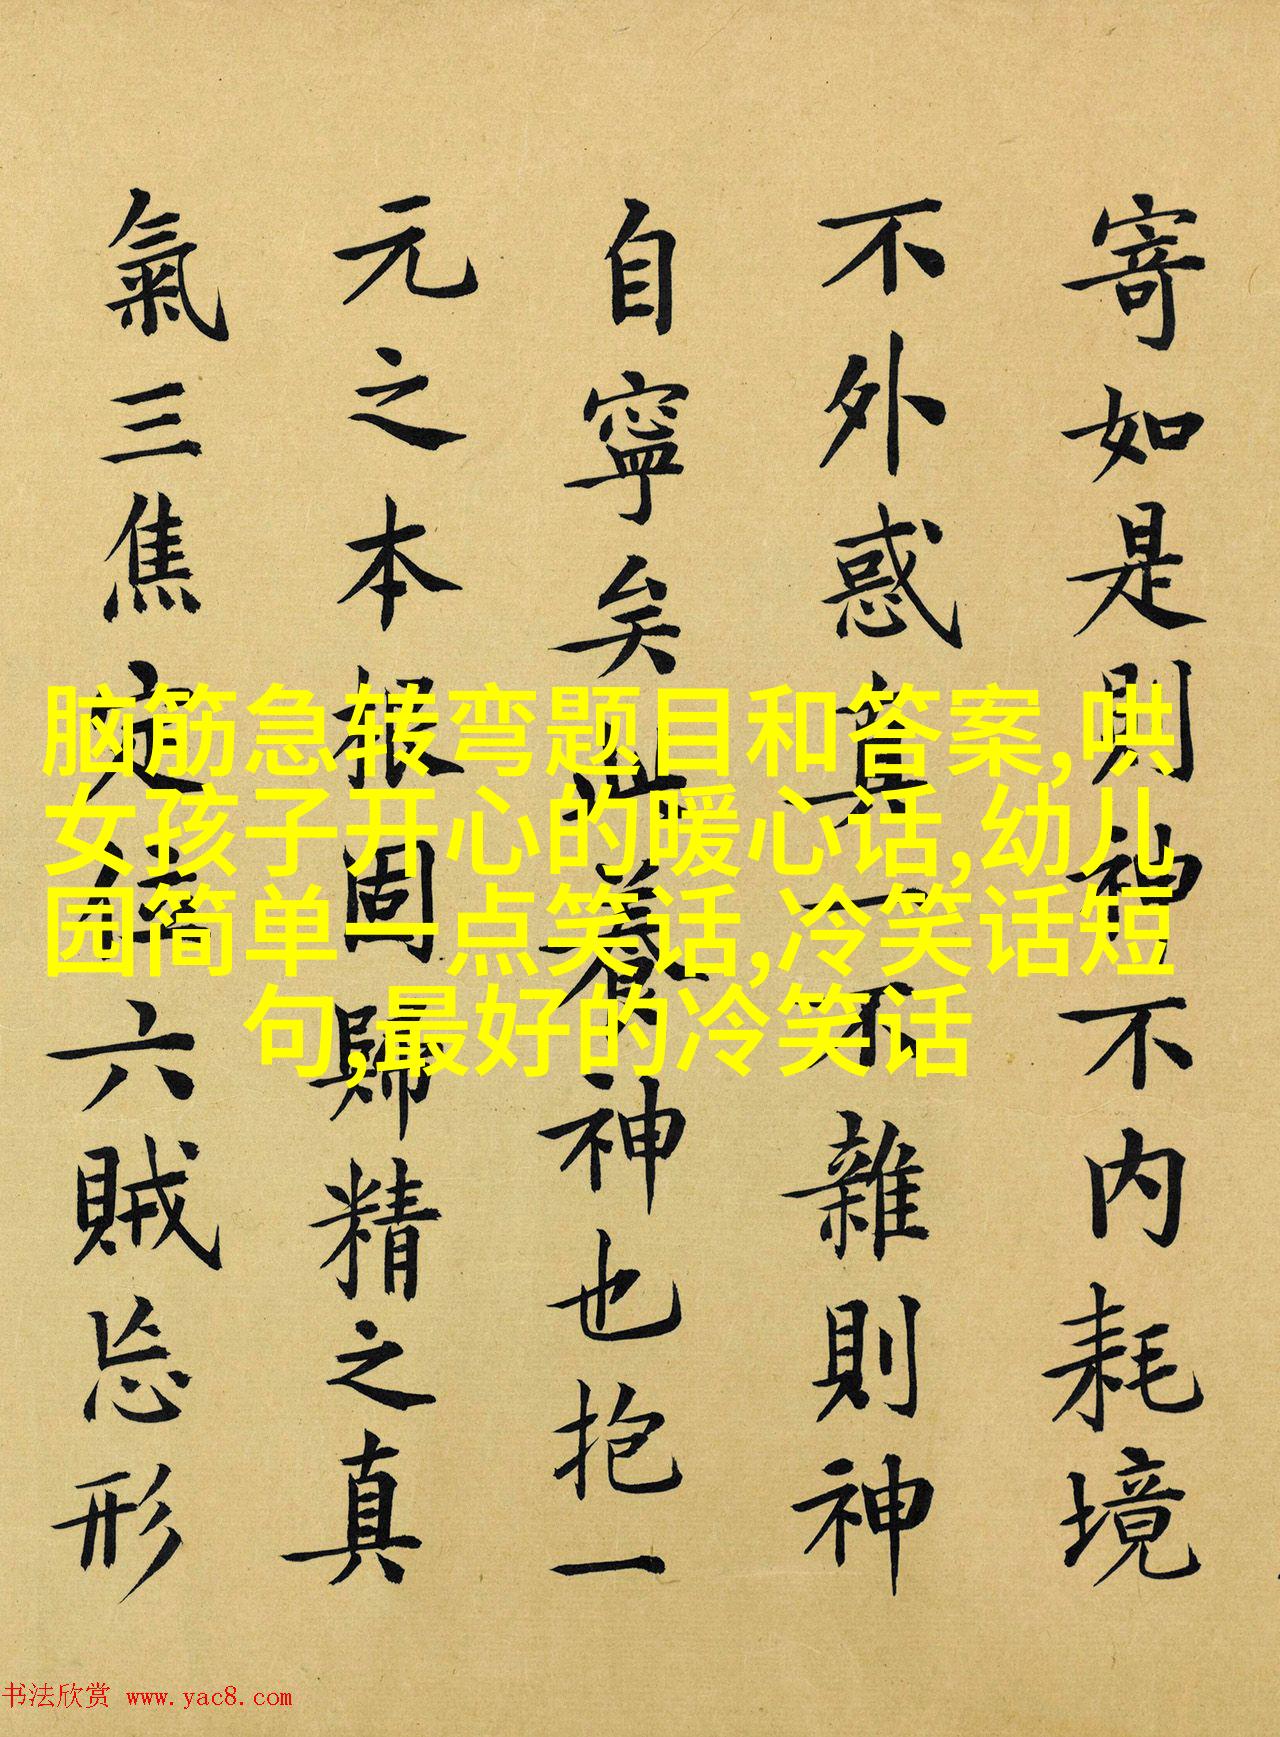 寄如是則神不内耗境
不外惑真一不雜則神
自寧矣此養神也抱一
元之本根固歸精之真
氣三焦定位六賊忘形
脑筋急转弯题目和答案,哄
女孩子开心的暖心话,幼儿
园简单一点笑话,冷笑话短
句,最好的冷笑话
书法欣赏 www.yac8.com